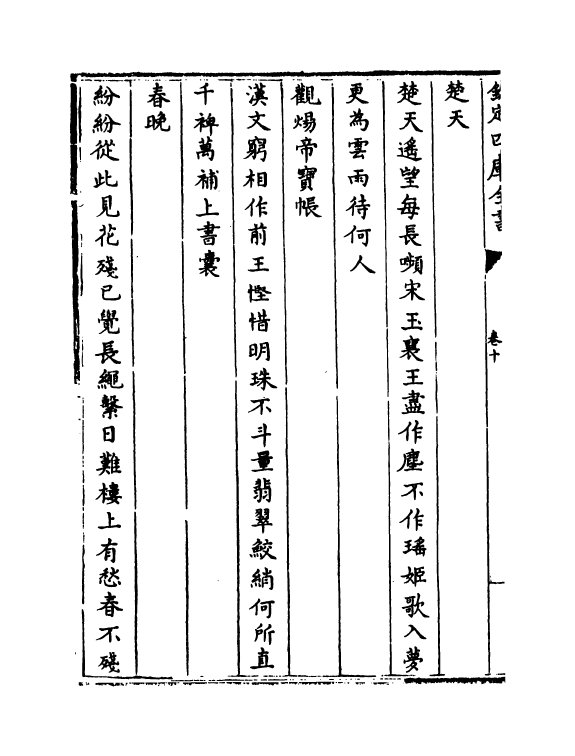 欽定四庫全書
卷十
楚天
楚天遥望每長嚬宋玉襄王盡作塵不作瑶姬歌入夢
更為雲雨待何人
觀煬帝寶帳
漢文窮相作前王慳惜明珠不斗量翡翠鮫綃何所直
千裨萬補上書囊
春晚
紛紛從此見花殘已覺長繩繫日難樓上有愁春不殘